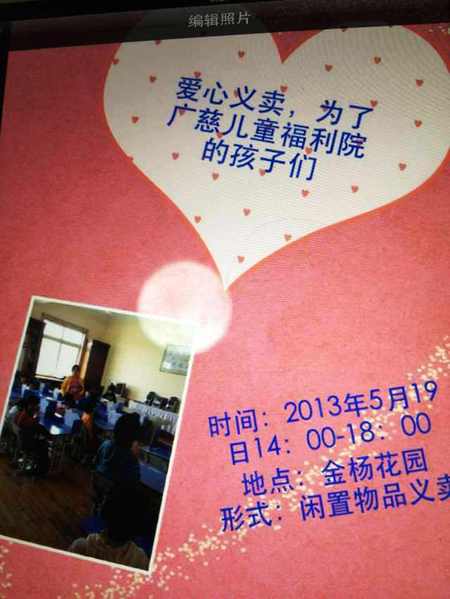 编辑照片
爱心义卖，为了
广慈儿童福利院
的孩子们
时间：2013年5月19
日14：00-18：00
地点：金杨花园
形式：闲置物品义卖